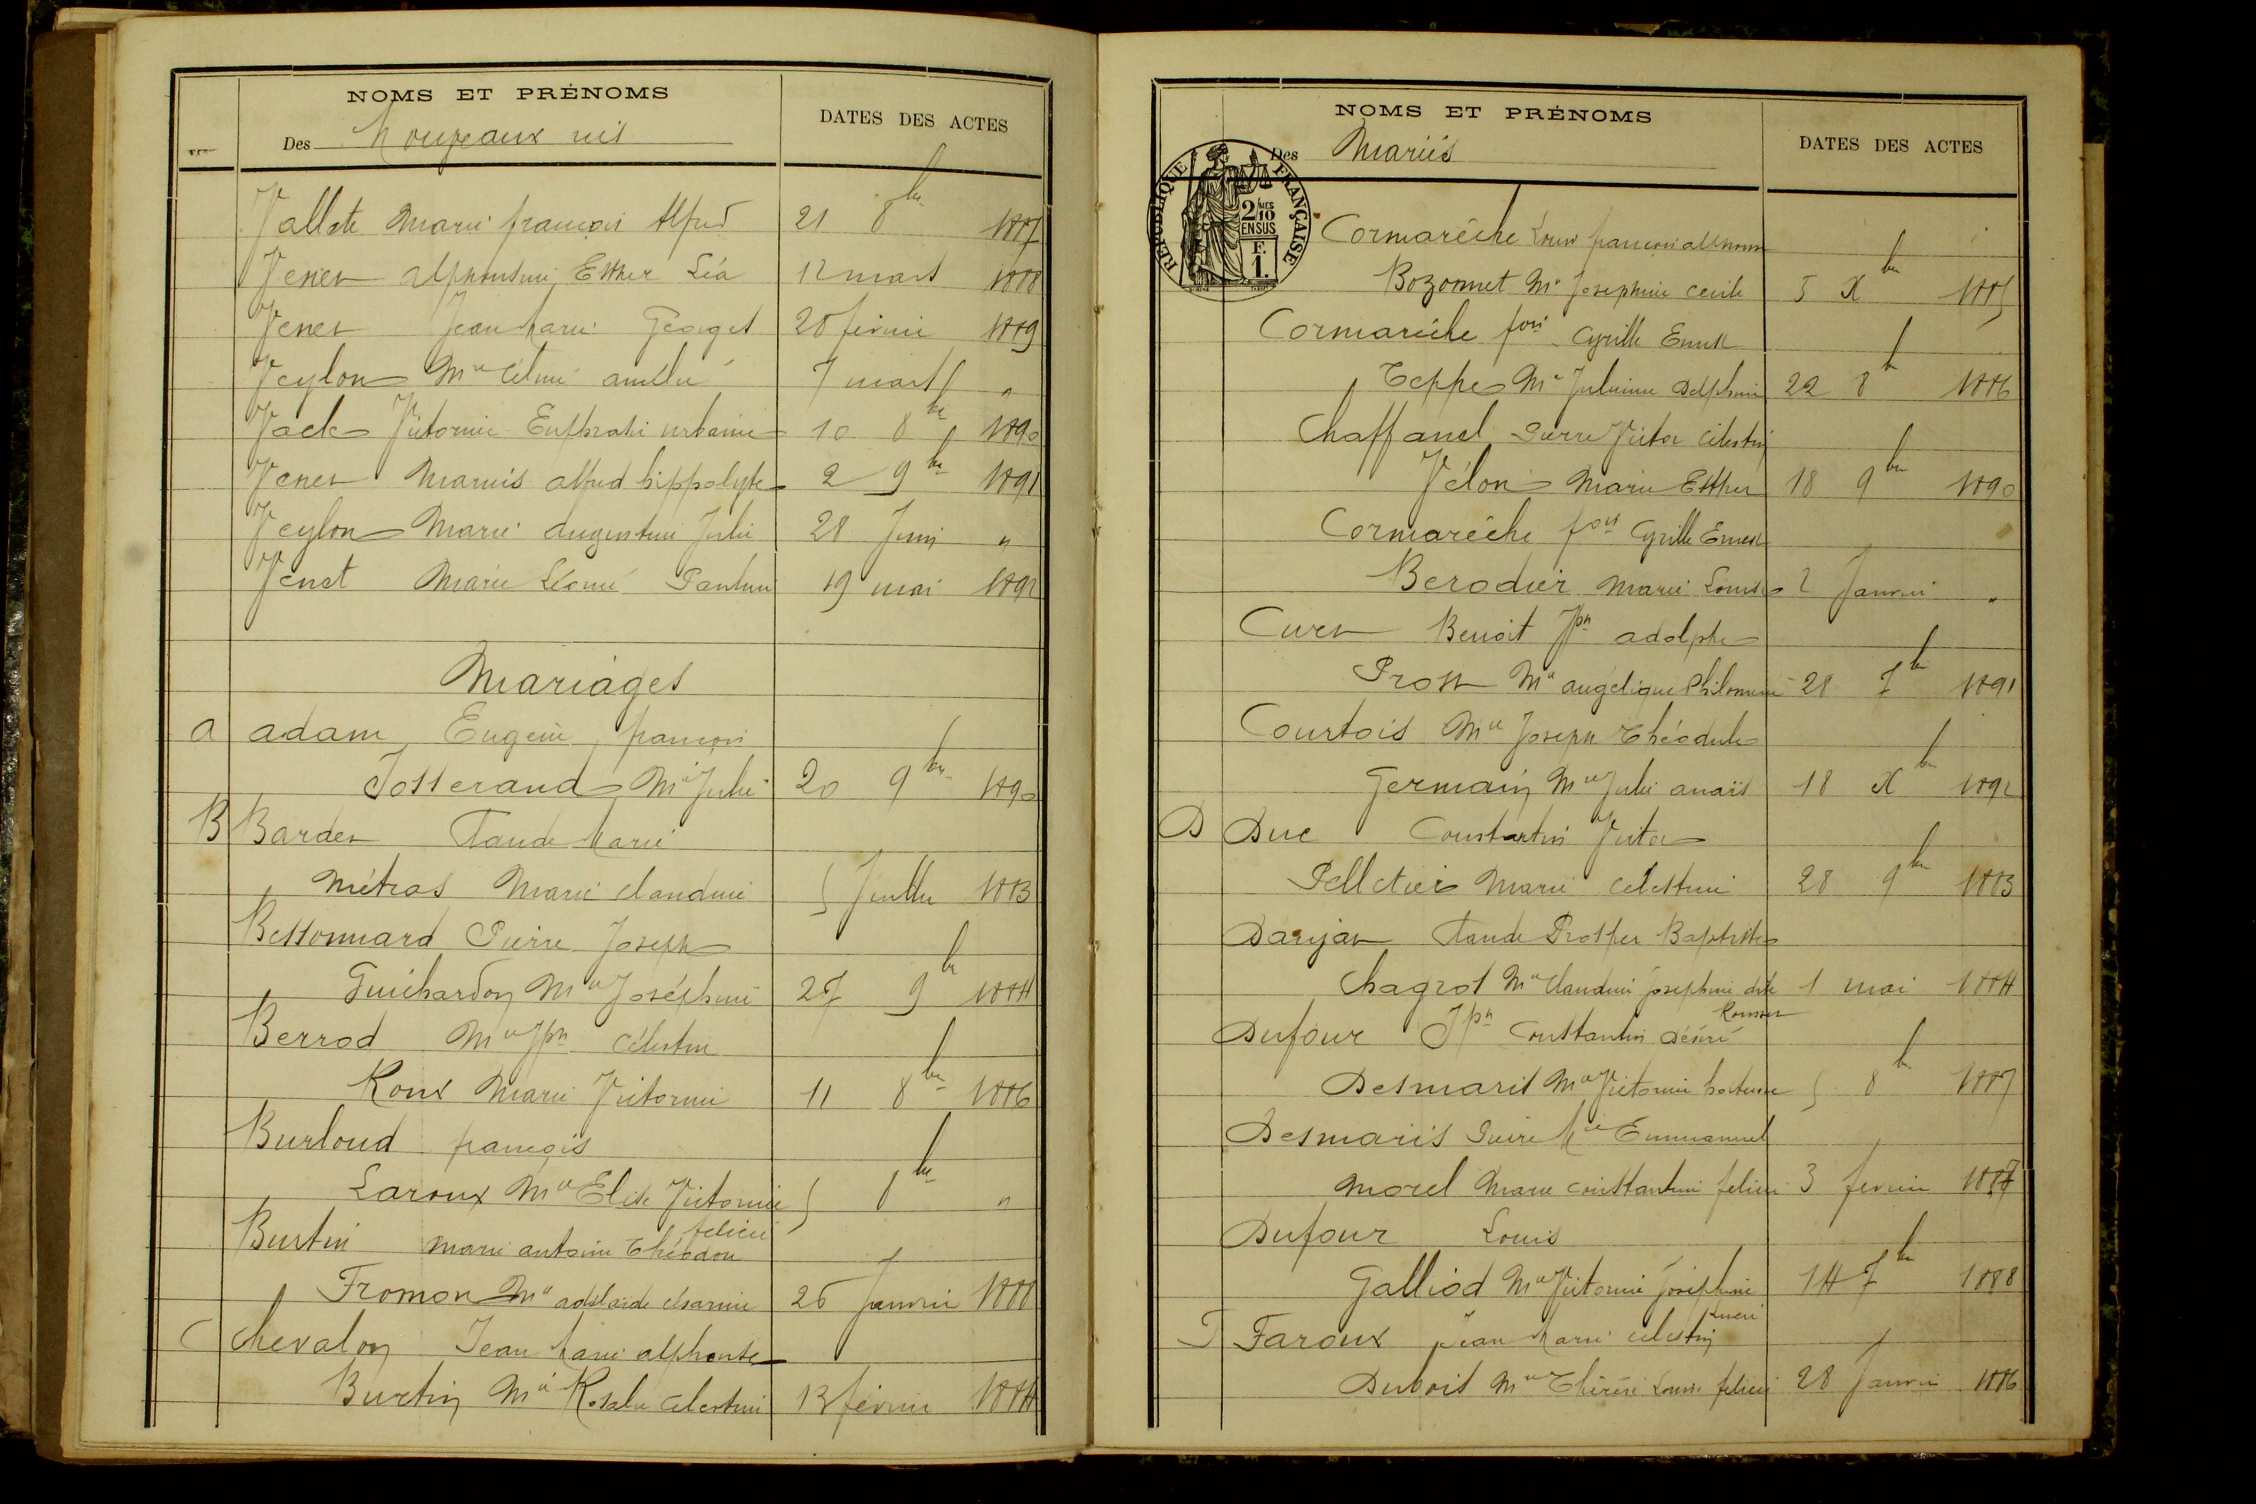 NOMS ET PRÉNOMS
DATES DES ACTES
Des Nouveaux nés
Vallet Marie françois Alfred 21 8bre 1887
Venet Alphonsine Esther Léa 12 mars 1888
Venet Jean Marie Georges 20 février 1889
Veylon Mie Céline amélie 7 mars "
Vack Victorine Euphrasie urbaine 10 8bre 1890
Venet Marius alfred hippolyte 2 9bre 1891
Veylon Marie augustine Julie 28 Juin "
Venet Marie Léonie Pauline 19 mai 1892
Mariages
a adam Eugène françois
Josserand Mie Julie 20 9bre 1890
B Bardet Claude Marie
Métras Marie claudine 5 Juillet 1883
Bessonnard Pierre Joseph
Guichardon Mie Joséphine 27 9bre 1884
Berrod Mie Jph Célestin
Roux Marie Victorine 11 8bre 1886
Burloud françois
Laroux Mie Elise Victorine 5 8bre "
félicie
Burtin marie antoine Théodore
Fromont Mie adélaïde 26 Janvier 1888
C Chevalon Jean Marie alphonse
Burtin Mie Rosalie Célestine 13 février 1884
NOMS ET PRÉNOMS
DATES DES ACTES
Des Mariés
RÉPUBLIQUE FRANÇAISE
2/10 MES
EN SUS
F.
1.
Cormarèche Louis françois
Bozonnet Mie Josephine Cécile 5 Xbre 1885
Cormarèche fois Cyrille Ernest
Teppe Mie Julienne Delphine 22 8bre 1886
Chaffanel Pierre Victor Célestin
Vélon Marie Esther 18 9bre 1890
Cormarèche fois Cyrille Ernest
Berodier Marie Louise 2 Janvier "
Curt Benoit Jph adolphe
Prost Mie angélique Philomène 28 7bre 1891
Courtois Mie Joseph Théodule
Germain Mie Julie anaïs 18 Xbre 1892
D Duc Constantin Victor
Pelletier Marie Celestine 28 9bre 1883
Darijat Claude Prosper Baptiste
Chagrot Mie Claudine Josephine dite 1 mai 1884
Dufour Jph Constantin Désiré
Desmaris Mie Victorine hortense 5 8bre 1887
Desmaris Pierre Mie Emmanuel
Morel Marie constantine félicie 3 février 1887
Dufour Louis
Galliod Mie Victorine Joséphine 14 7bre 1888
F Faroux Jean Marie célestin
Dubois Mie Thérèse Louise félicie 28 Janvier 1886